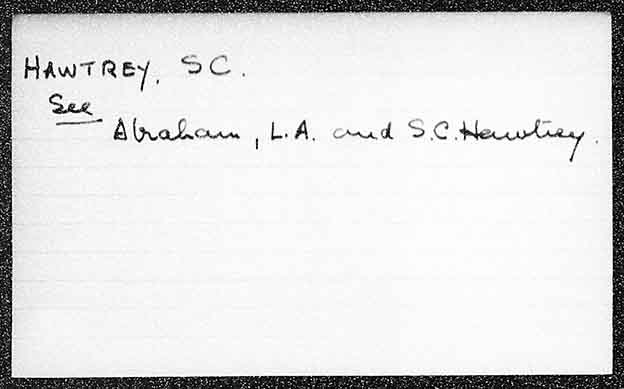 HAWTREY, S C.
See
Abraham, L.A. and S.C. Hawtrey.